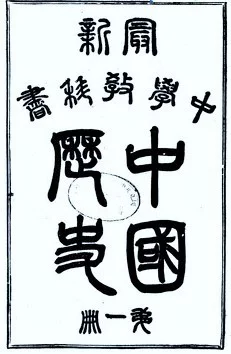 最新
中學教科書
中國歷史
第一冊